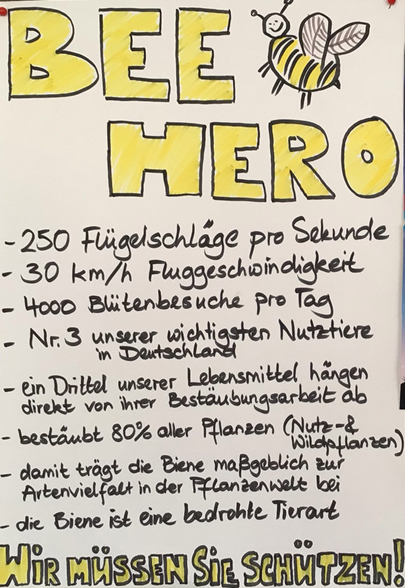 BEE
HERO
- 250 Flügelschläge pro Sekunde
- 30 km/h Fluggeschwindigkeit
- 4000 Blütenbesuche pro Tag
- Nr. 3 unserer wichtigsten Nutztiere
in Deutschland
- ein Drittel unserer Lebensmittel hängen
direkt von ihrer Bestäubungsarbeit ab
- bestäubt 80% aller Pflanzen (Nutz-&
Wildpflanzen)
- damit trägt die Biene maßgeblich zur
Artenvielfalt in der Pflanzenwelt bei
- die Biene ist eine bedrohte Tierart
WIR MÜSSEN SIE SCHÜTZEN!